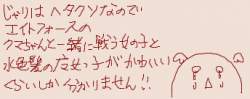 じゃりはヘタクソなので
エイトフォースの
クマちゃんと一緒に戦う女の子と
水色髪の女っ子がかわいい
くらいしか分かりません!!